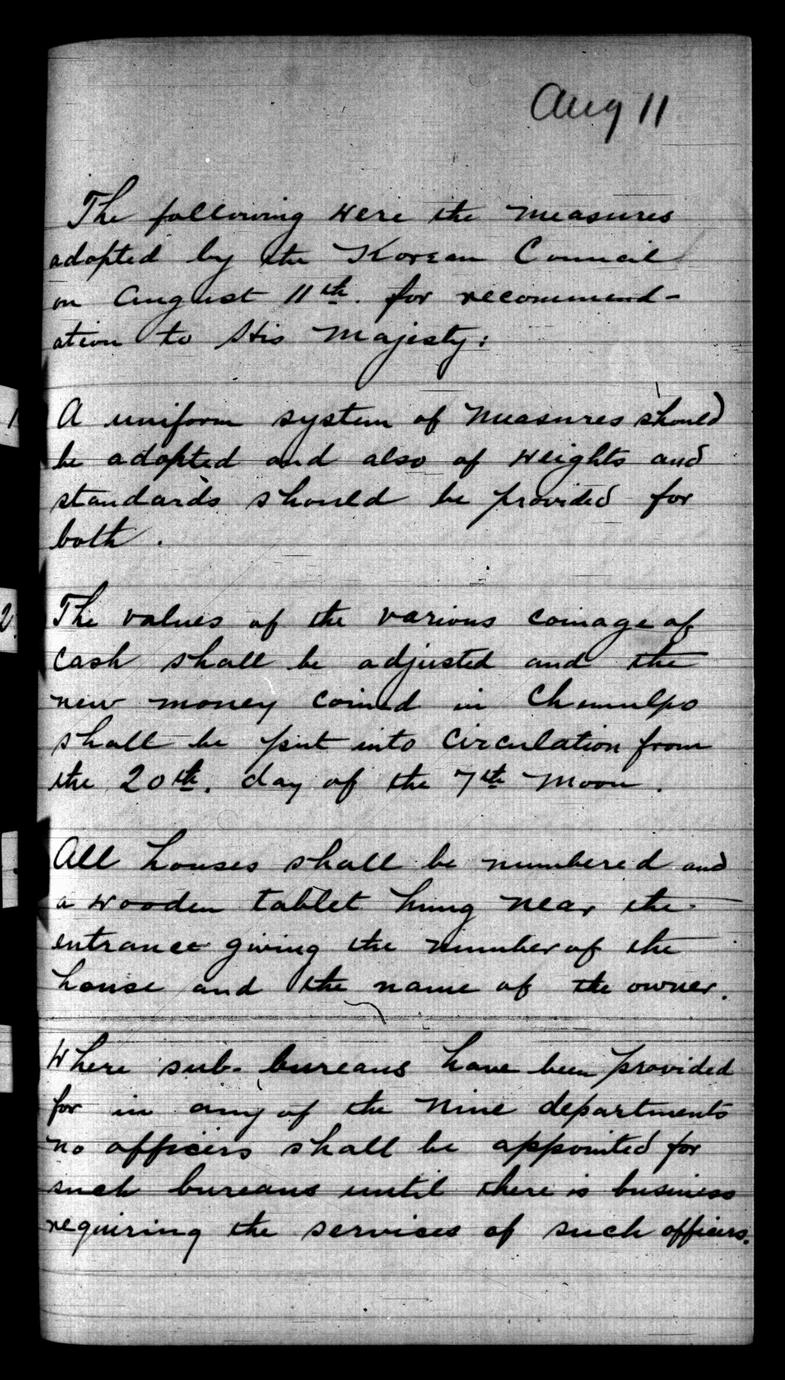 Aug 11
The following were the measures
adopted by the Korean Council
on August 11th. for recommend-
ation to His Majesty:
1
A uniform system of measures should
be adopted and also of weights and
standards should be provided for
both.
2.
The values of the various coinage of
cash shall be adjusted and the
new money coined in Chemulpo
shall be put into circulation from
the 20th. day of the 7th moon.
All houses shall be numbered and
a wooden tablet hung near the
entrance giving the number of the
house and the name of the owner.
Where sub-bureaus have been provided
for in any of the nine departments
no officers shall be appointed for
such bureaus until there is business
requiring the services of such officers.